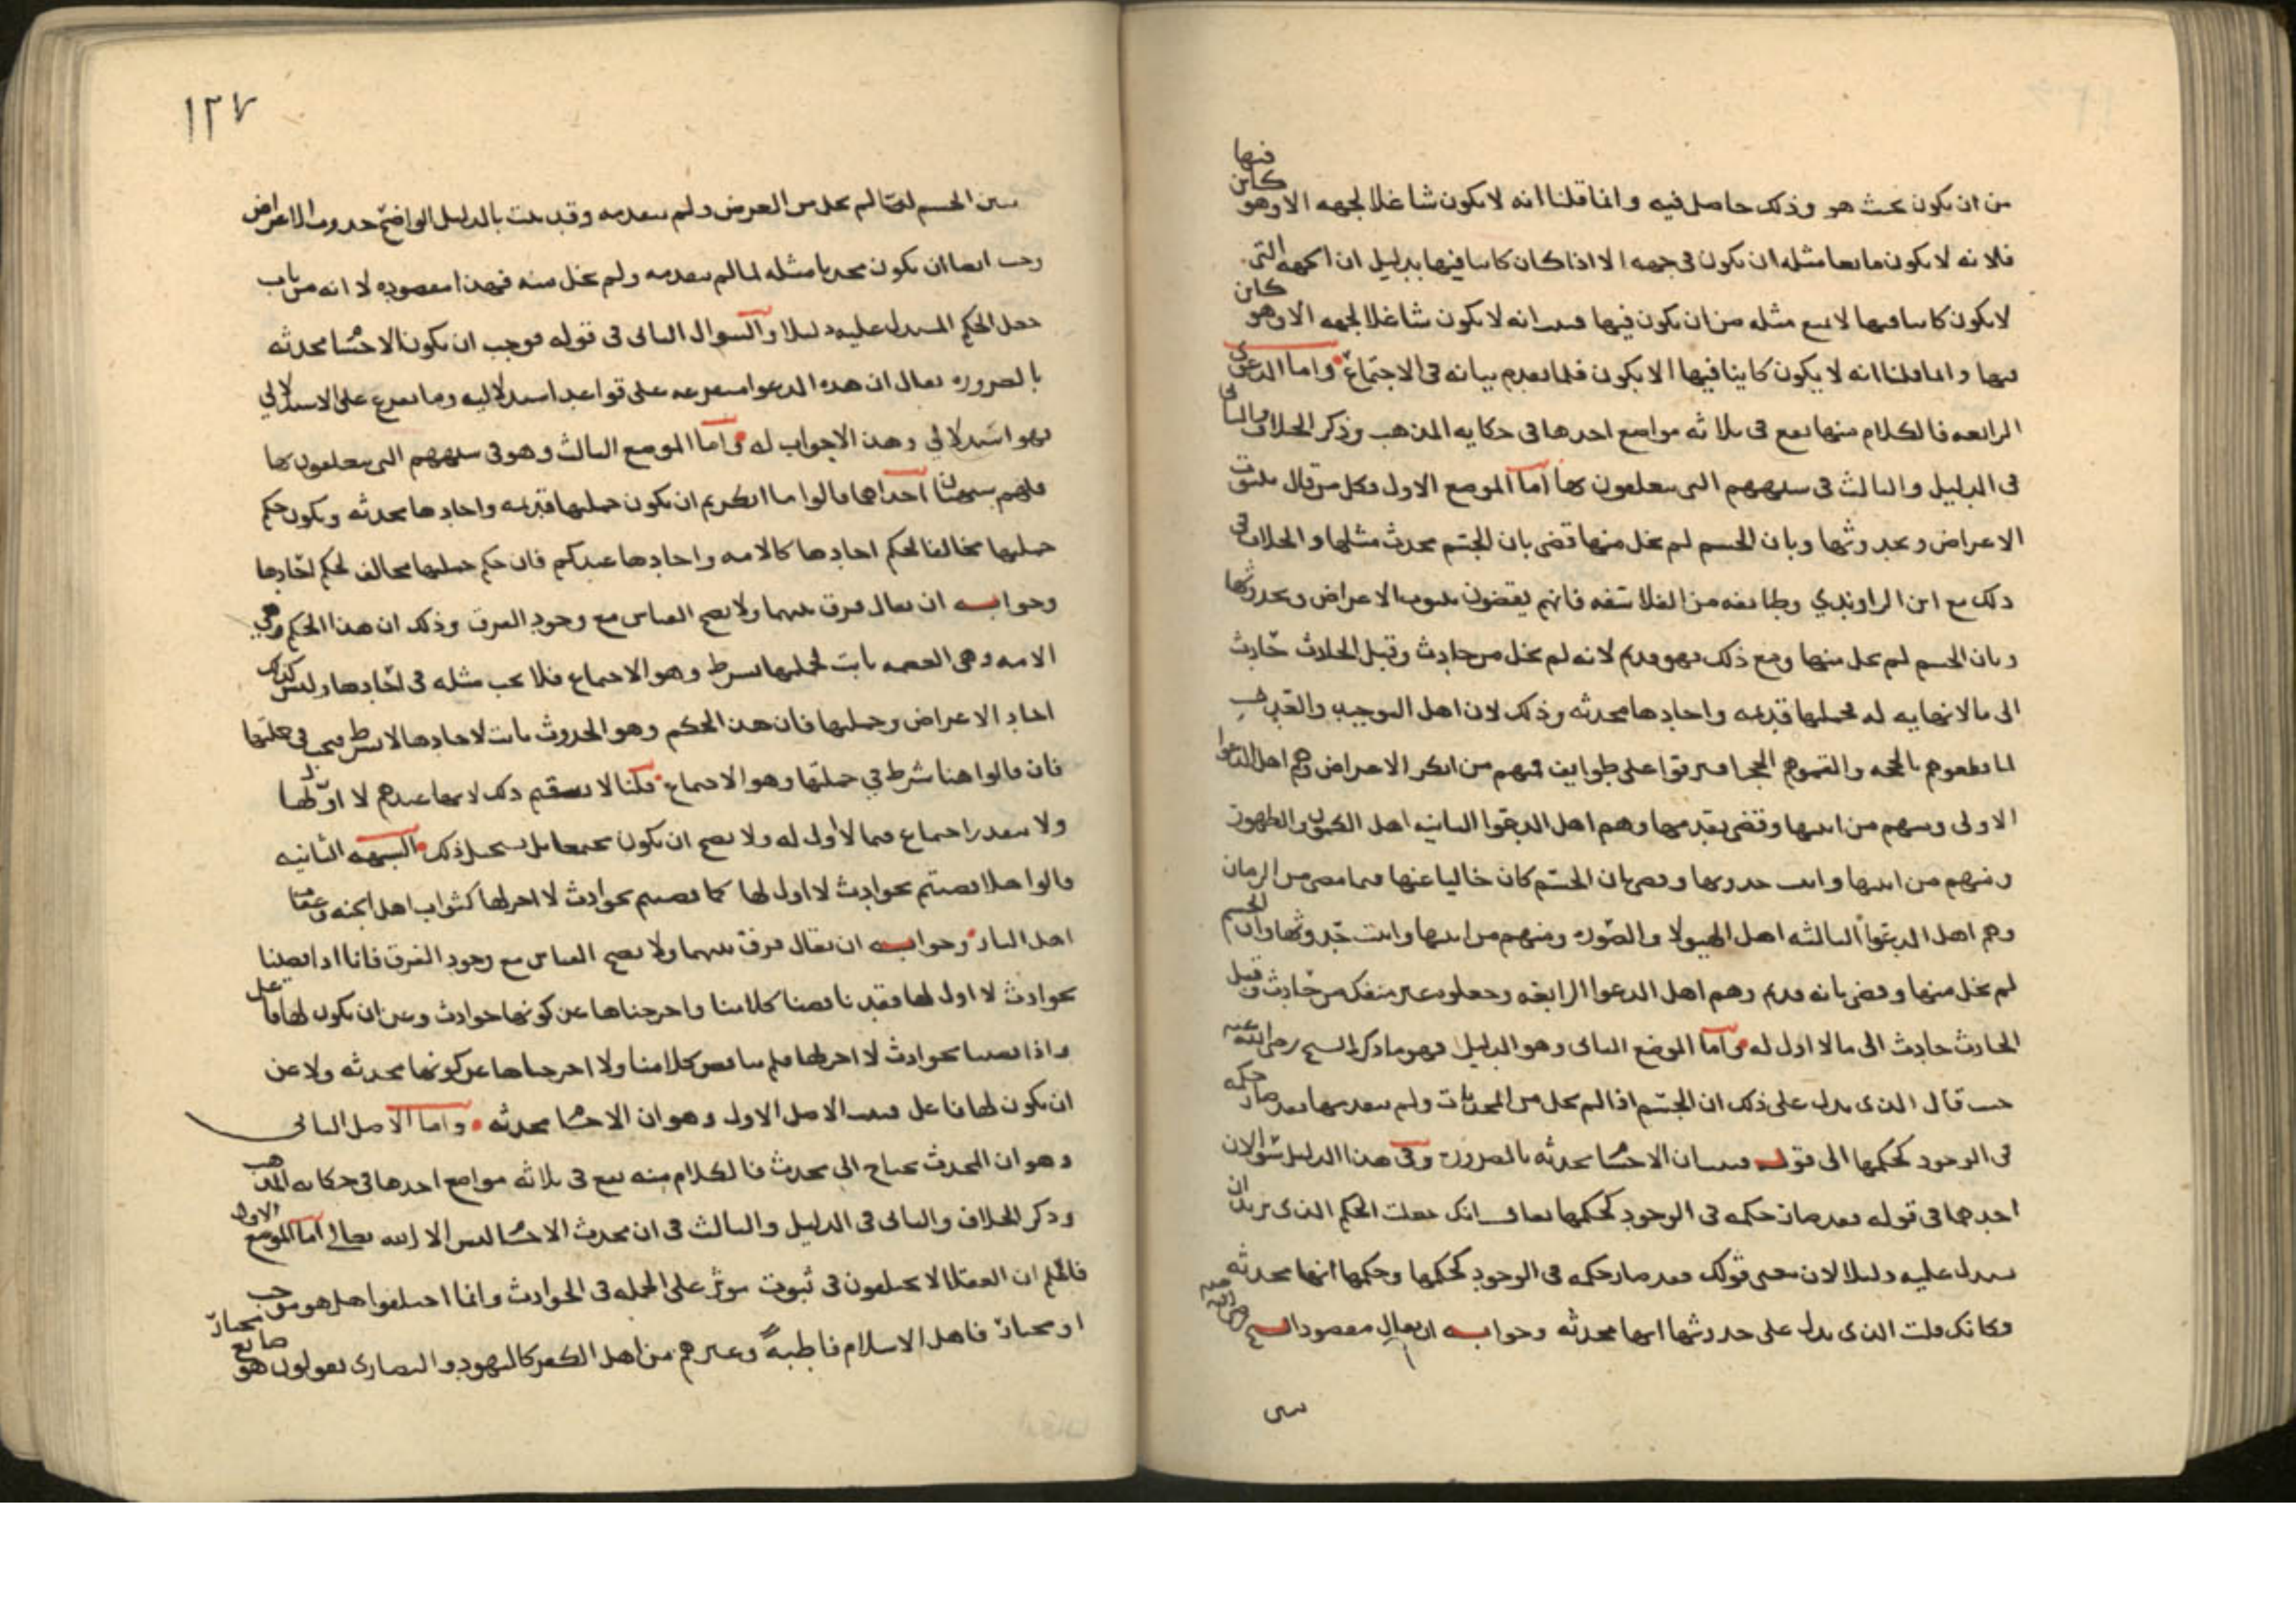 من ان يكون بحيث هو وذلك حاصل فيه وانما قلنا انه لا يكون شاغلا لجهه الا وهو كاين فيها
فلانه لا يكون مانعا مثله ان يكون في جهه الا اذا كان كاينا فيها بدليل ان الجهه التي
لا يكون كاينا فيها لا يمنع مثله من ان يكون فيها فثبت انه لا يكون شاغلا لجهه الا وهو كاين
فيها وانما قلنا انه لا يكون كاينا فيها الا بكون فلما تقدم بيانه في الاجتماع واما الدعوى
الرابعه فالكلام منها يقع في ثلاثه مواضع احدها في حكايه المذهب وذكر الخلاف والثاني
في الدليل والثالث في شبههم التي يتعلقون بها اما الموضع الاول فكل من قال بثبوت
الاعراض وبحدوثها وبان الجسم لم يخل منها قضى بان الجسم محدث مثلها والخلاف في
ذلك مع ابن الراوندي وطايفه من الفلاسفه فانهم يقضون بثبوت الاعراض وبحدوثها
وبان الجسم لم يخل منها ومع ذلك فهو قديم لانه لم يخل من حادث وقبل الحادث حادث
الى ما لا نهايه له فجملتها قديمه واحادها محدثه وذلك لان اهل التوحيد والعدل
لما قطعوهم بالحجه افترقوا على طوايف فمنهم من انكر الاعراض وهم اهل الدعوا
الاولى ومنهم من اثبتها وقضى بقدمها وهم اهل الدعوا الثانيه اهل الكمون والظهور
ومنهم من اثبتها واثبت حدوثها وقضى بان الجسم كان خاليا عنها فيما مضى من الزمان
وهم اهل الدعوا الثالثه اهل الهيولا والصوره ومنهم من اثبتها واثبت حدوثها وان الجسم
لم يخل منها وقضى بانه قديم وهم اهل الدعوا الرابعه وجعلوه غير منفك من حادث وقبل
الحادث حادث الى ما لا اول له واما الموضع الثاني وهو الدليل فهو ما ذكره الشيخ رضي الله عنه
حيث قال الذي يدل على ذلك ان الجسم اذا لم يخل من المحدثات ولم يتقدمها فقد صار حكمه
في الوجود كحكمها الى قوله فثبت ان الاجسام محدثه بالضروره وفي هذا الدليل سوالان
احدهما في قوله فقد صار حكمه في الوجود كحكمها يقال انك جعلت الحكم الذي تريد ان
تستدل عليه دليلا لان معنى قولك فقد صار حكمه في الوجود كحكمها وحكمها انها محدثه
فكانك قلت الذي يدل على حدوثها انها محدثه وجوابه ان يقال مقصود الشيخ رضي الله عنه
١٢٧
الجسم لما لم يخل من العرض ولم يتقدمه وقد ثبت بالدليل الواضح حدوث الاعراض
وجب ايضا ان يكون محدثا مثله لما لم يتقدمه ولم يخل منه فهذا مقصوده لا انه من باب
جعل الحكم المستدل عليه دليلا والسوال الثاني في قوله فوجب ان يكون الاجسام محدثه
بالضروره يقال ان هذه الدعوا متفرعه على قواعد استدلاليه وما تفرع على الاستدلالي
فهو استدلالي وهذا لا جواب له واما الموضع الثالث وهو في شبههم التي يتعلقون بها
فلهم شبهتان احداهما قالوا ما انكرتم ان يكون جملتها قديمه واحادها محدثه ويكون حكم
جملتها مخالفا لحكم احادها كالامه واحادها عندكم فان حكم جملتها مخالف لحكم احادها
وجوابه ان يقال فرق بينهما ولا يصح القياس مع وجود الفرق وذلك ان هذا الحكم في
الامه وهي العصمه ثابت لجملتها بشرط وهو الاجماع فلا يجب مثله في احادها وليس كذلك
احاد الاعراض وجملتها فان هذا الحكم وهو الحدوث ثابت لاحادها لا بشرط فيجب في جملتها
فان قالوا هنا شرط في جملتها وهو الاجماع قلنا لا يستقيم ذلك لانها عندهم لا اول لها
ولا يتقدر اجتماع فيما لا اول له ولا يصح ان يكون مجتمعا بل يستحيل ذلك الشبهه الثانيه
قالوا هلا قضيتم بحوادث لا اول لها كما قضيتم بحوادث لا اخر لها كثواب اهل الجنه وعقاب
اهل النار وجوابه ان يقال فرق بينهما ولا يصح القياس مع وجود الفرق فانا اذا قضينا
بحوادث لا اول لها فقد ناقضنا كلامنا واخرجناها عن كونها حوادث وعن ان يكون لها فاعل
واذا قضينا بحوادث لا اخر لها فلم يناقض كلامنا ولا اخرجناها عن كونها محدثه ولا عن
ان يكون لها فاعل فثبت الاصل الاول وهو ان الاجسام محدثه واما الاصل الثاني
وهو ان المحدث يحتاج الى محدث فالكلام منه يقع في ثلاثه مواضع احدها في حكايه المذهب
وذكر الخلاف والثاني في الدليل والثالث في ان محدث الاجسام ليس الا الله تعالى اما الموضع الاول
فاعلم ان العقلا لا يختلفون في ثبوت موثر على الجمله في الحوادث وانما اختلفوا هل هو موجب
او مختار فاهل الاسلام قاطبة وغيرهم من اهل الكفر كاليهود والنصارى يقولون هو صانع مختار